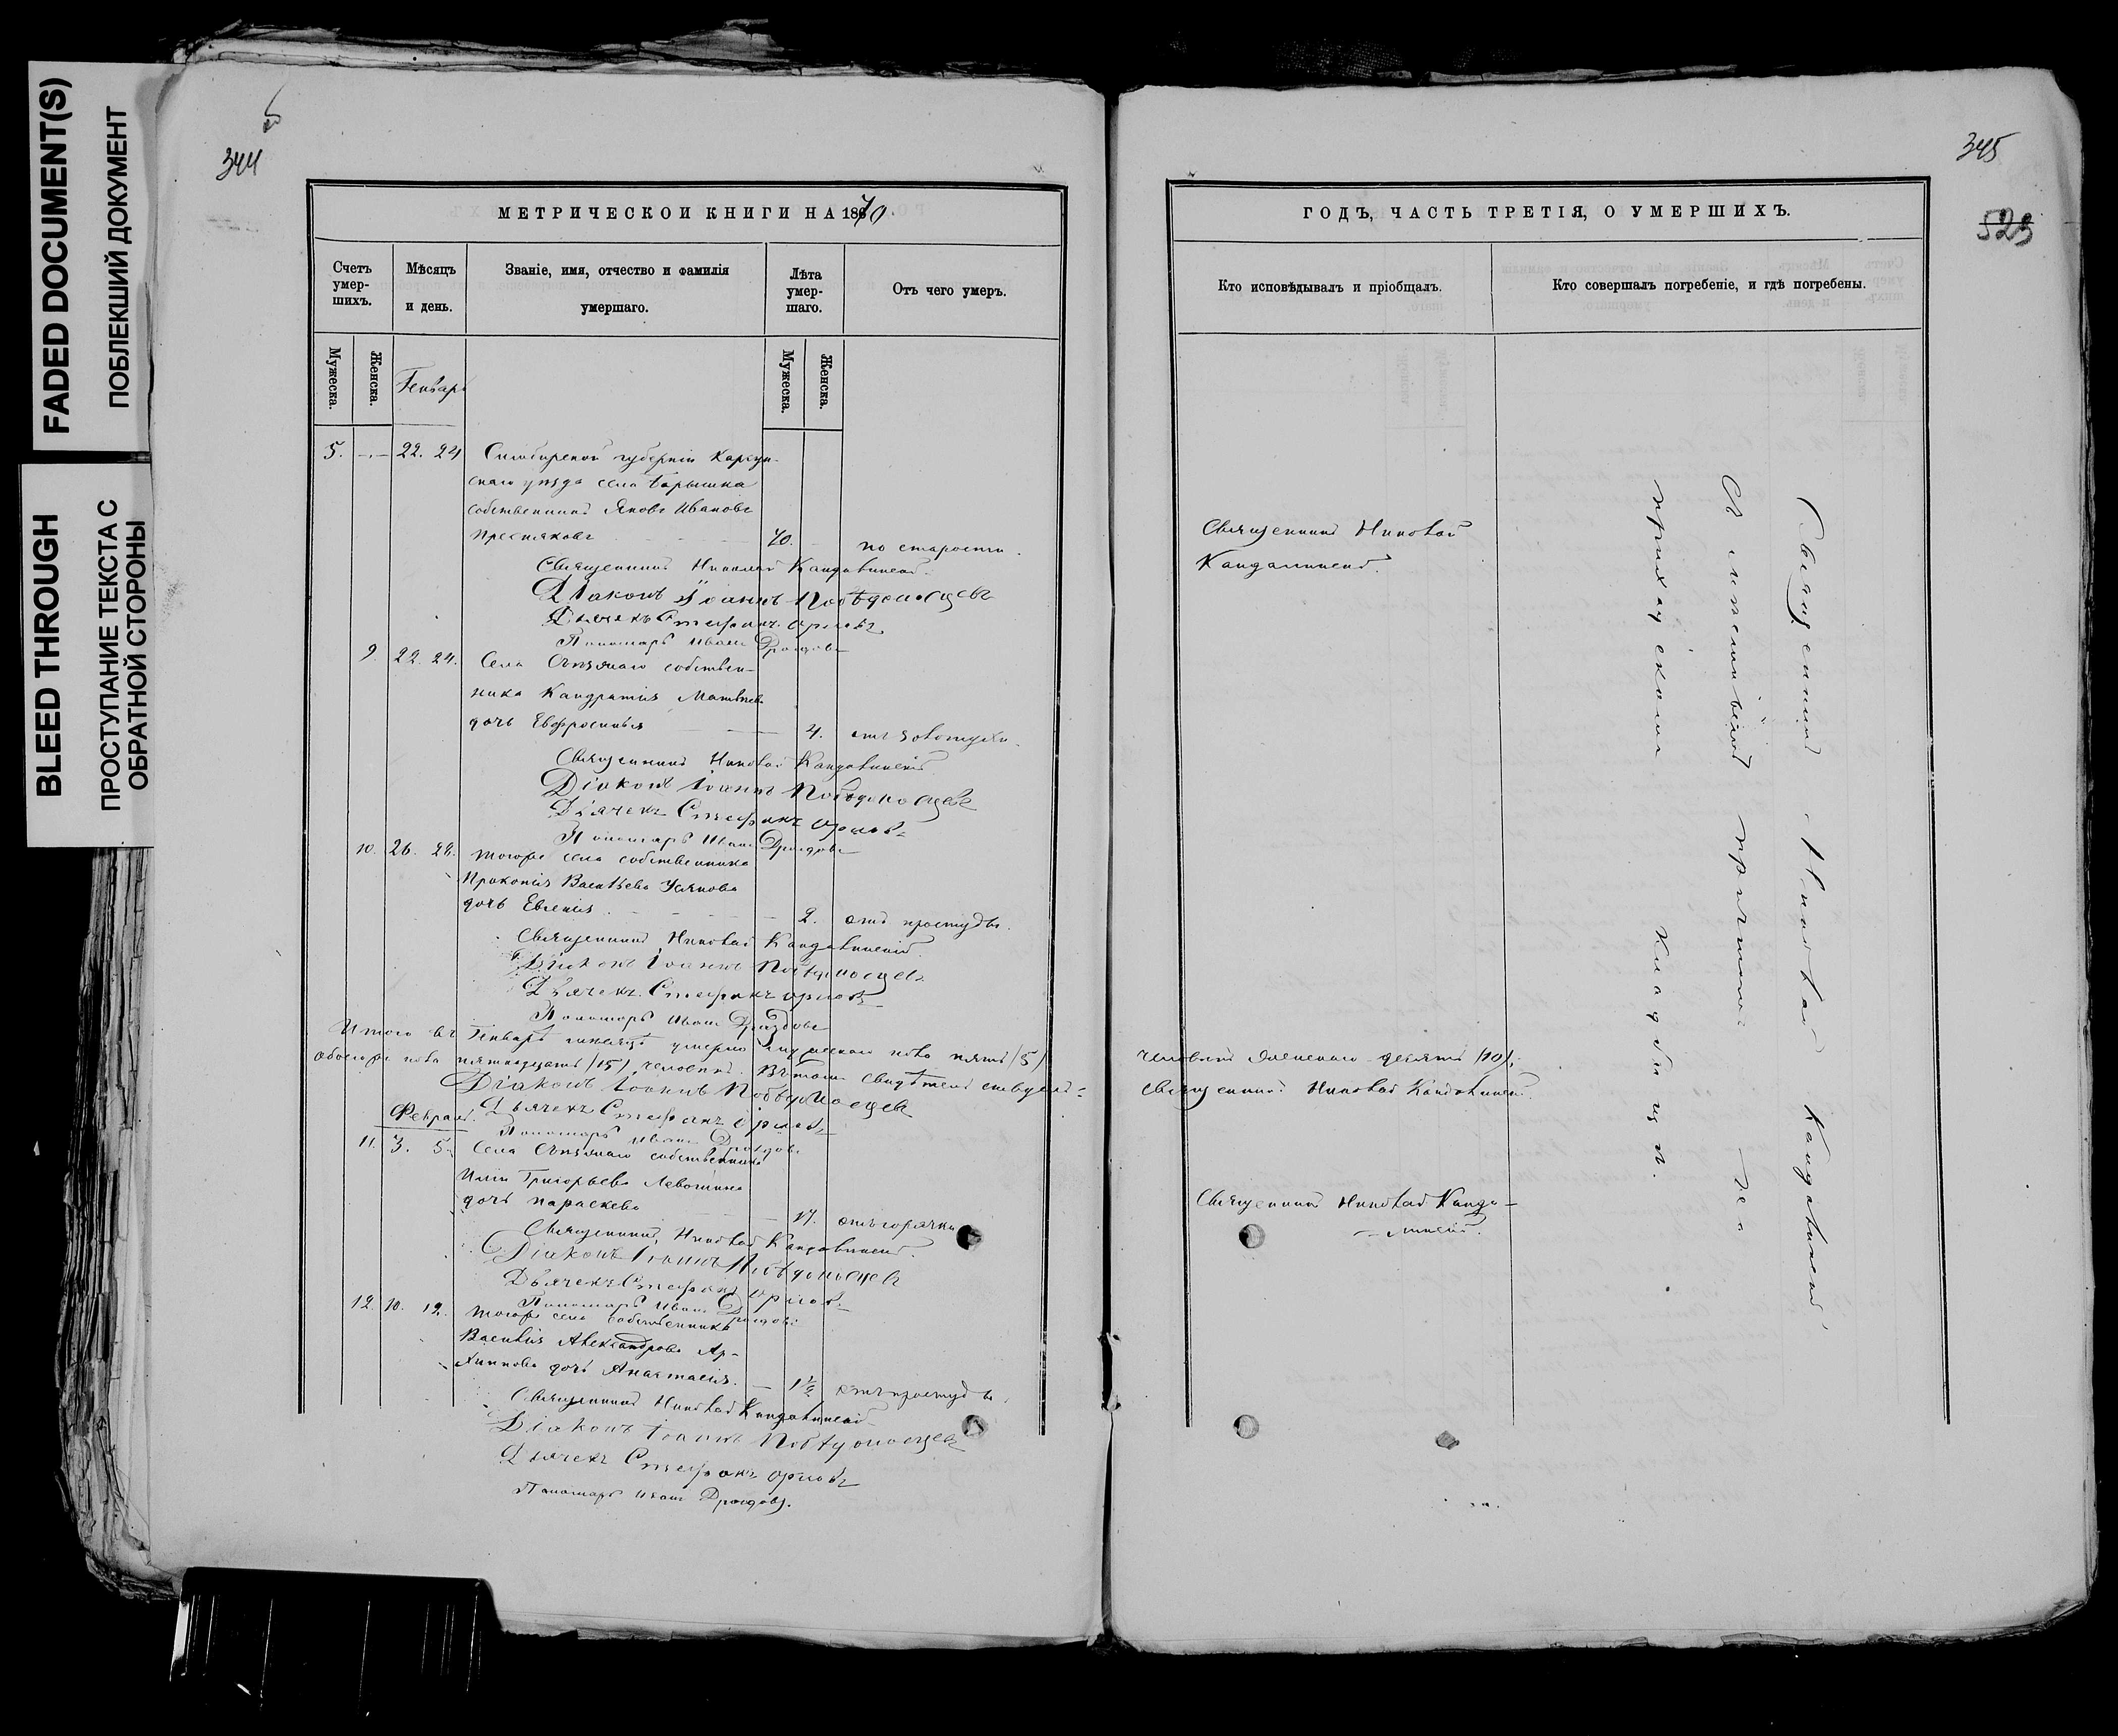 FADED DOCUMENT(S)
ПОБЛЕКШИЙ ДОКУМЕНТ
BLEED THROUGH
ПРОСТУПАНИЕ ТЕКСТА С
ОБРАТНОЙ СТОРОНЫ
344
МЕТРИЧЕСКОИ КНИГИ НА 1870
Счетъ умер-шихъ.
Мѣсяцъ и день.
Званіе, имя, отчество и фамилія умершаго.
Лѣта умер-шаго.
Отъ чего умеръ.
Мужеска.
Женска.
Генварь
Мужеска.
Женска.
5. — 22. 24 Симбирской губерніи Карсун-
скаго уѣзда села Барышка
собственникъ Яковъ Ивановъ
Пресняковъ 70. по старости.
Священникъ Николай Кандалинскій
Діаконъ Іоаннъ Побѣдоносцевъ
Дьячекъ Стефанъ Орловъ
Пономарь Иванъ Дроздовъ
9. 22. 24. Села собствен-
ника Кандратія Матвѣева
дочь Евфросинья 4. отъ золотухи.
Священникъ Николай Кандалинскій
Діаконъ Іоаннъ Побѣдоносцевъ
Дьячекъ Стефанъ Орловъ
Пономарь Иванъ Дроздовъ
10. 26. 28. тогоже села собственника
Прокопія Васильева
дочь Евгенія 2. отъ простуды.
Священникъ Николай Кандалинскій
Діаконъ Іоаннъ Побѣдоносцевъ
Дьячекъ Стефанъ Орловъ
Пономарь Иванъ Дроздовъ
Итого въ Генварѣ мѣсяцѣ умерло мужескаго пола пять (5)
обоего же пола пятнадцать (15) человѣкъ. Въ томъ свидѣтельствуемъ:
Діаконъ Іоаннъ Побѣдоносцевъ
Дьячекъ Стефанъ Орловъ
Февраль. Пономарь Иванъ Дроздовъ
11. 3. 5. Села собственника
Григорьева
дочь Параскева 17. отъ горячки
Священникъ Николай Кандалинскій
Діаконъ Іоаннъ Побѣдоносцевъ
Дьячекъ Стефанъ Орловъ
Пономарь Иванъ Дроздовъ
12. 10. 12. тогоже села собственника
Василія Александрова Ар-
хипова дочь Анастасія. 1½ отъ простуды.
Священникъ Николай Кандалинскій
Діаконъ Іоаннъ Побѣдоносцевъ
Дьячекъ Стефанъ Орловъ
Пономарь Иванъ Дроздовъ.
345
523
ГОДЪ, ЧАСТЬ ТРЕТІЯ, О УМЕРШИХЪ.
Кто исповѣдывалъ и пріобщалъ.
Кто совершалъ погребеніе, и гдѣ погребены.
Священникъ Николай
Кандалинскій.
человѣкъ женскаго десять (10);
Священникъ Николай Кандалинскій.
Священникъ Николай Канда-
линскій.
Священникъ Николай Кандалинскій
съ причтомъ на
приходскомъ кладбищѣ.